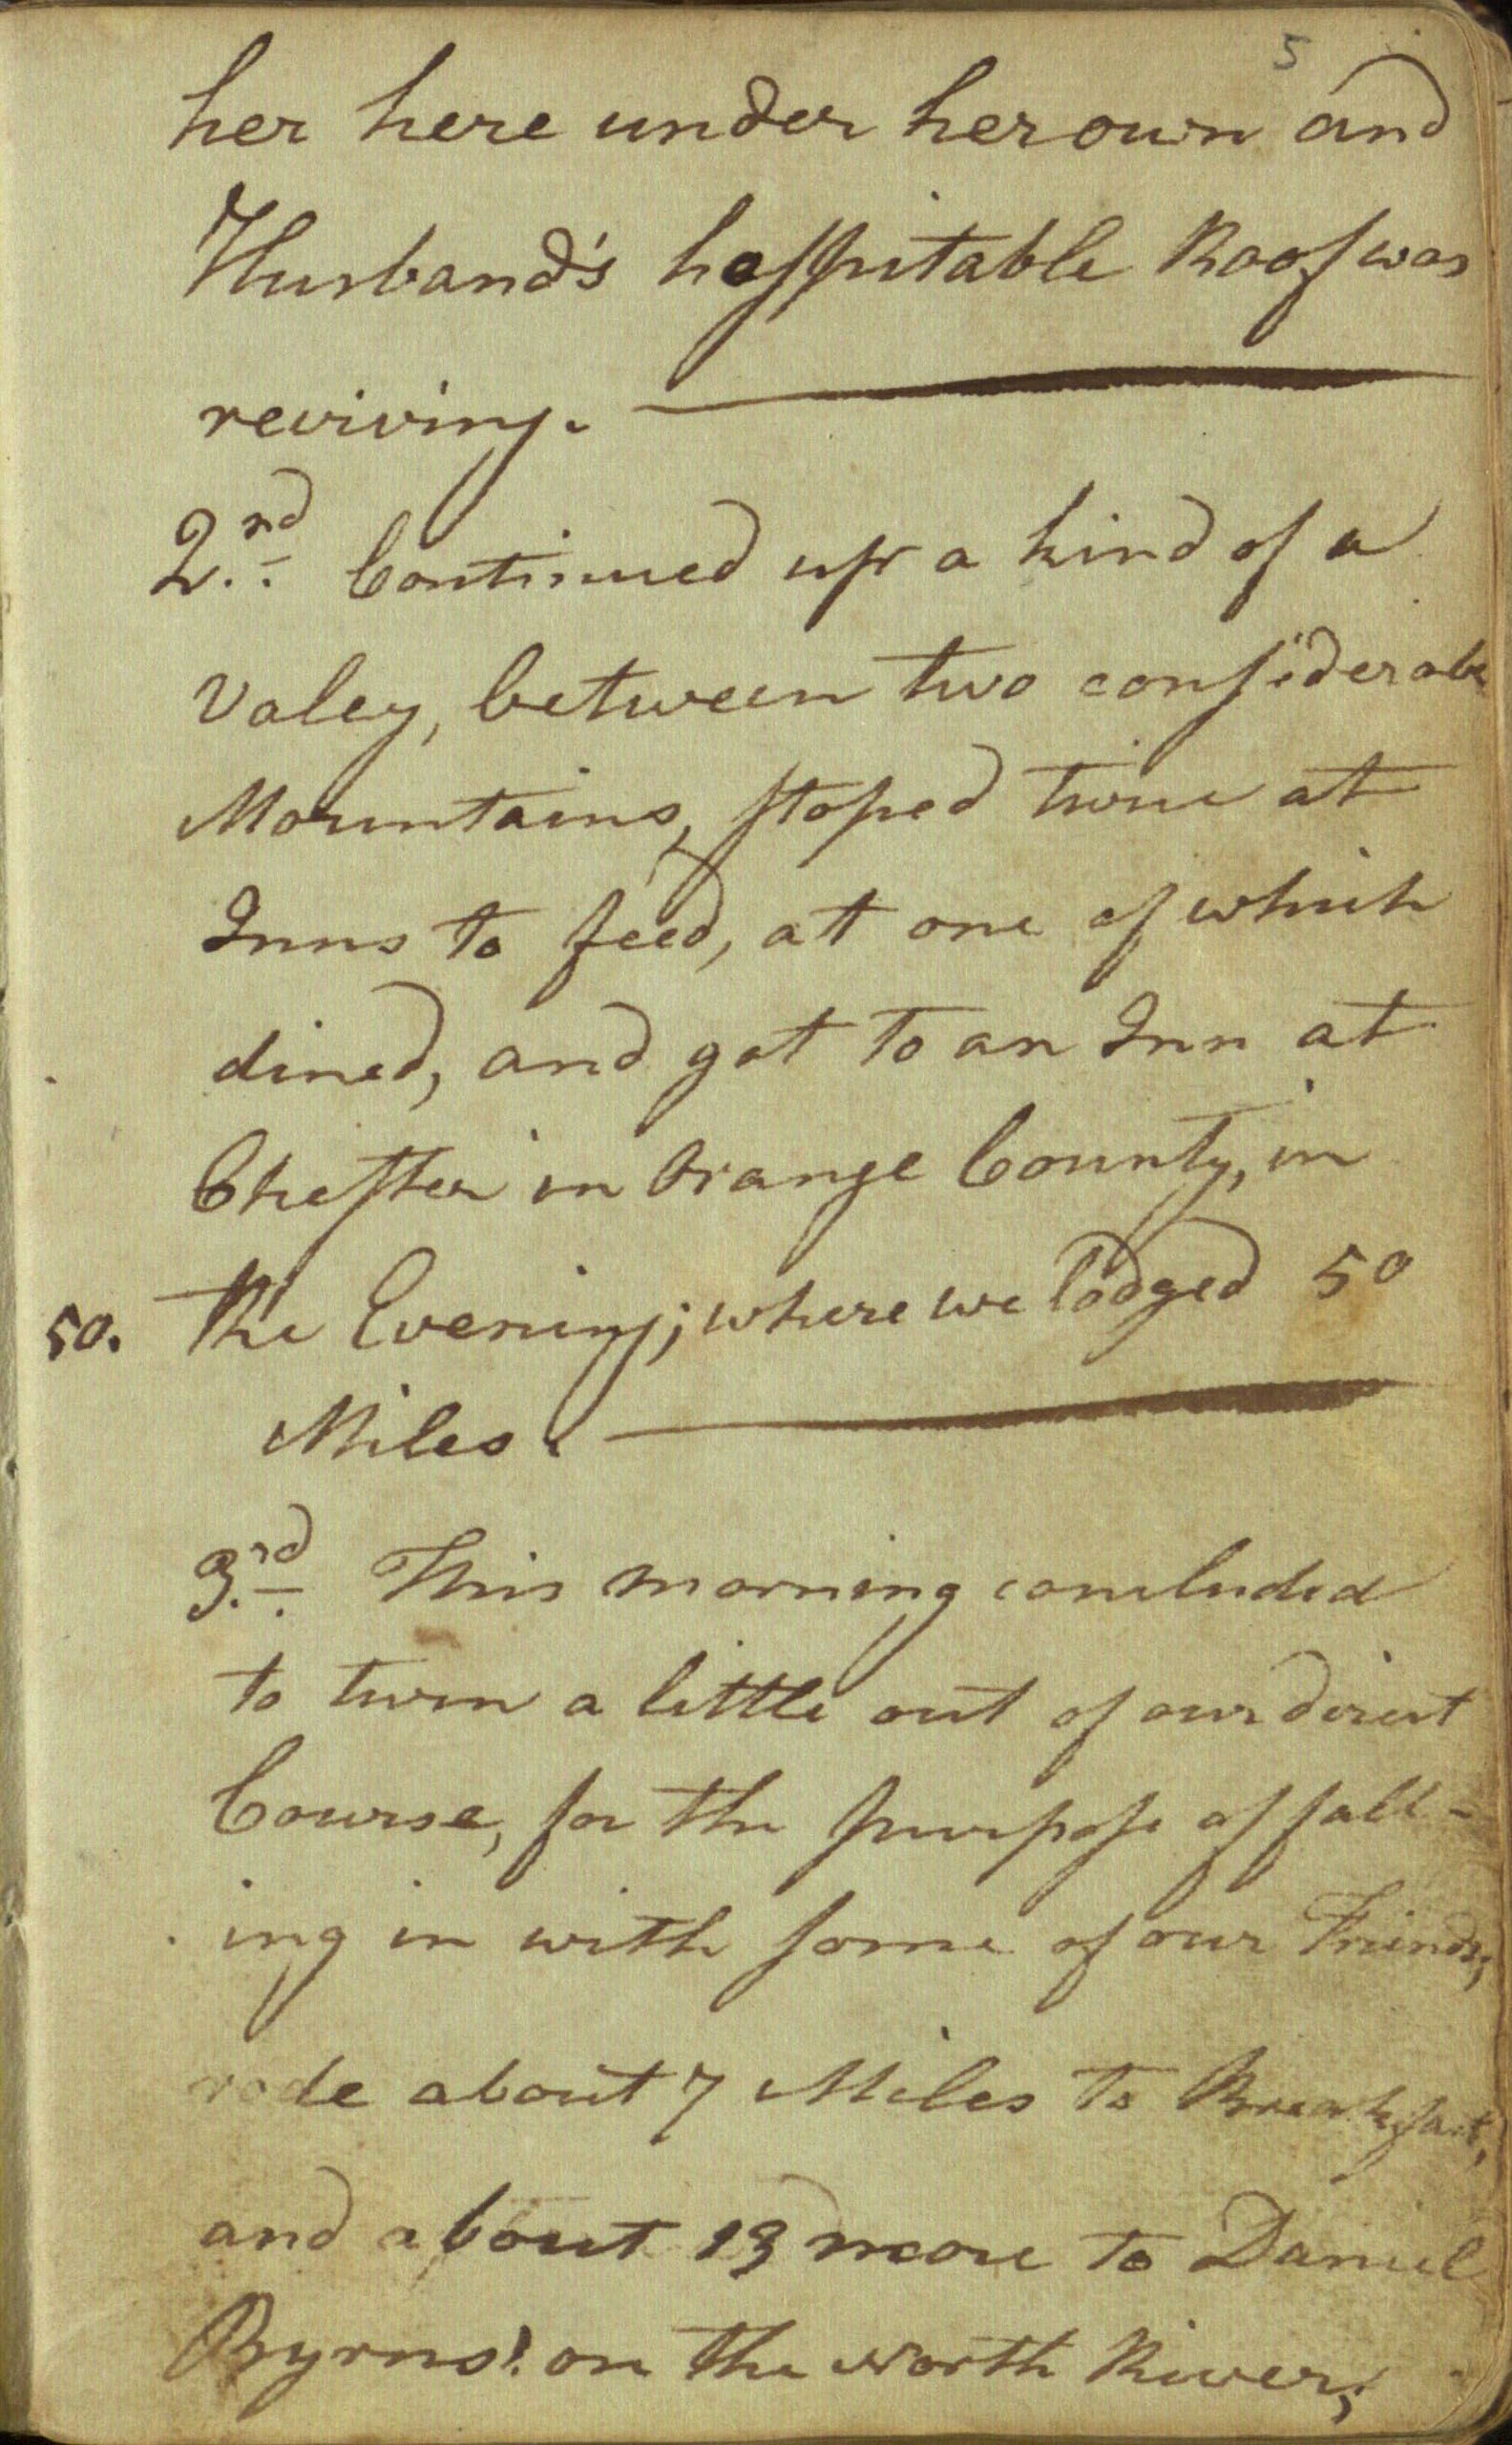 5
her here under her own and
Husband's hospitable Roof was
reviving.
2.nd Continued up a kind of a
Valey, between two considerable
Mountains, stoped twice at
Inns to feed, at one of which
dined, and got to an Inn at
Chester in Orange County, in
50. the Evening; where we lodged 50
Miles.
3.rd This morning concluded
to turn a little out of our direct
Course, for the purpose of fall-
ing in with some of our Friends,
rode about 7 Miles to Breakfast,
and about 13 more to Daniel
Byrns's on the North River;